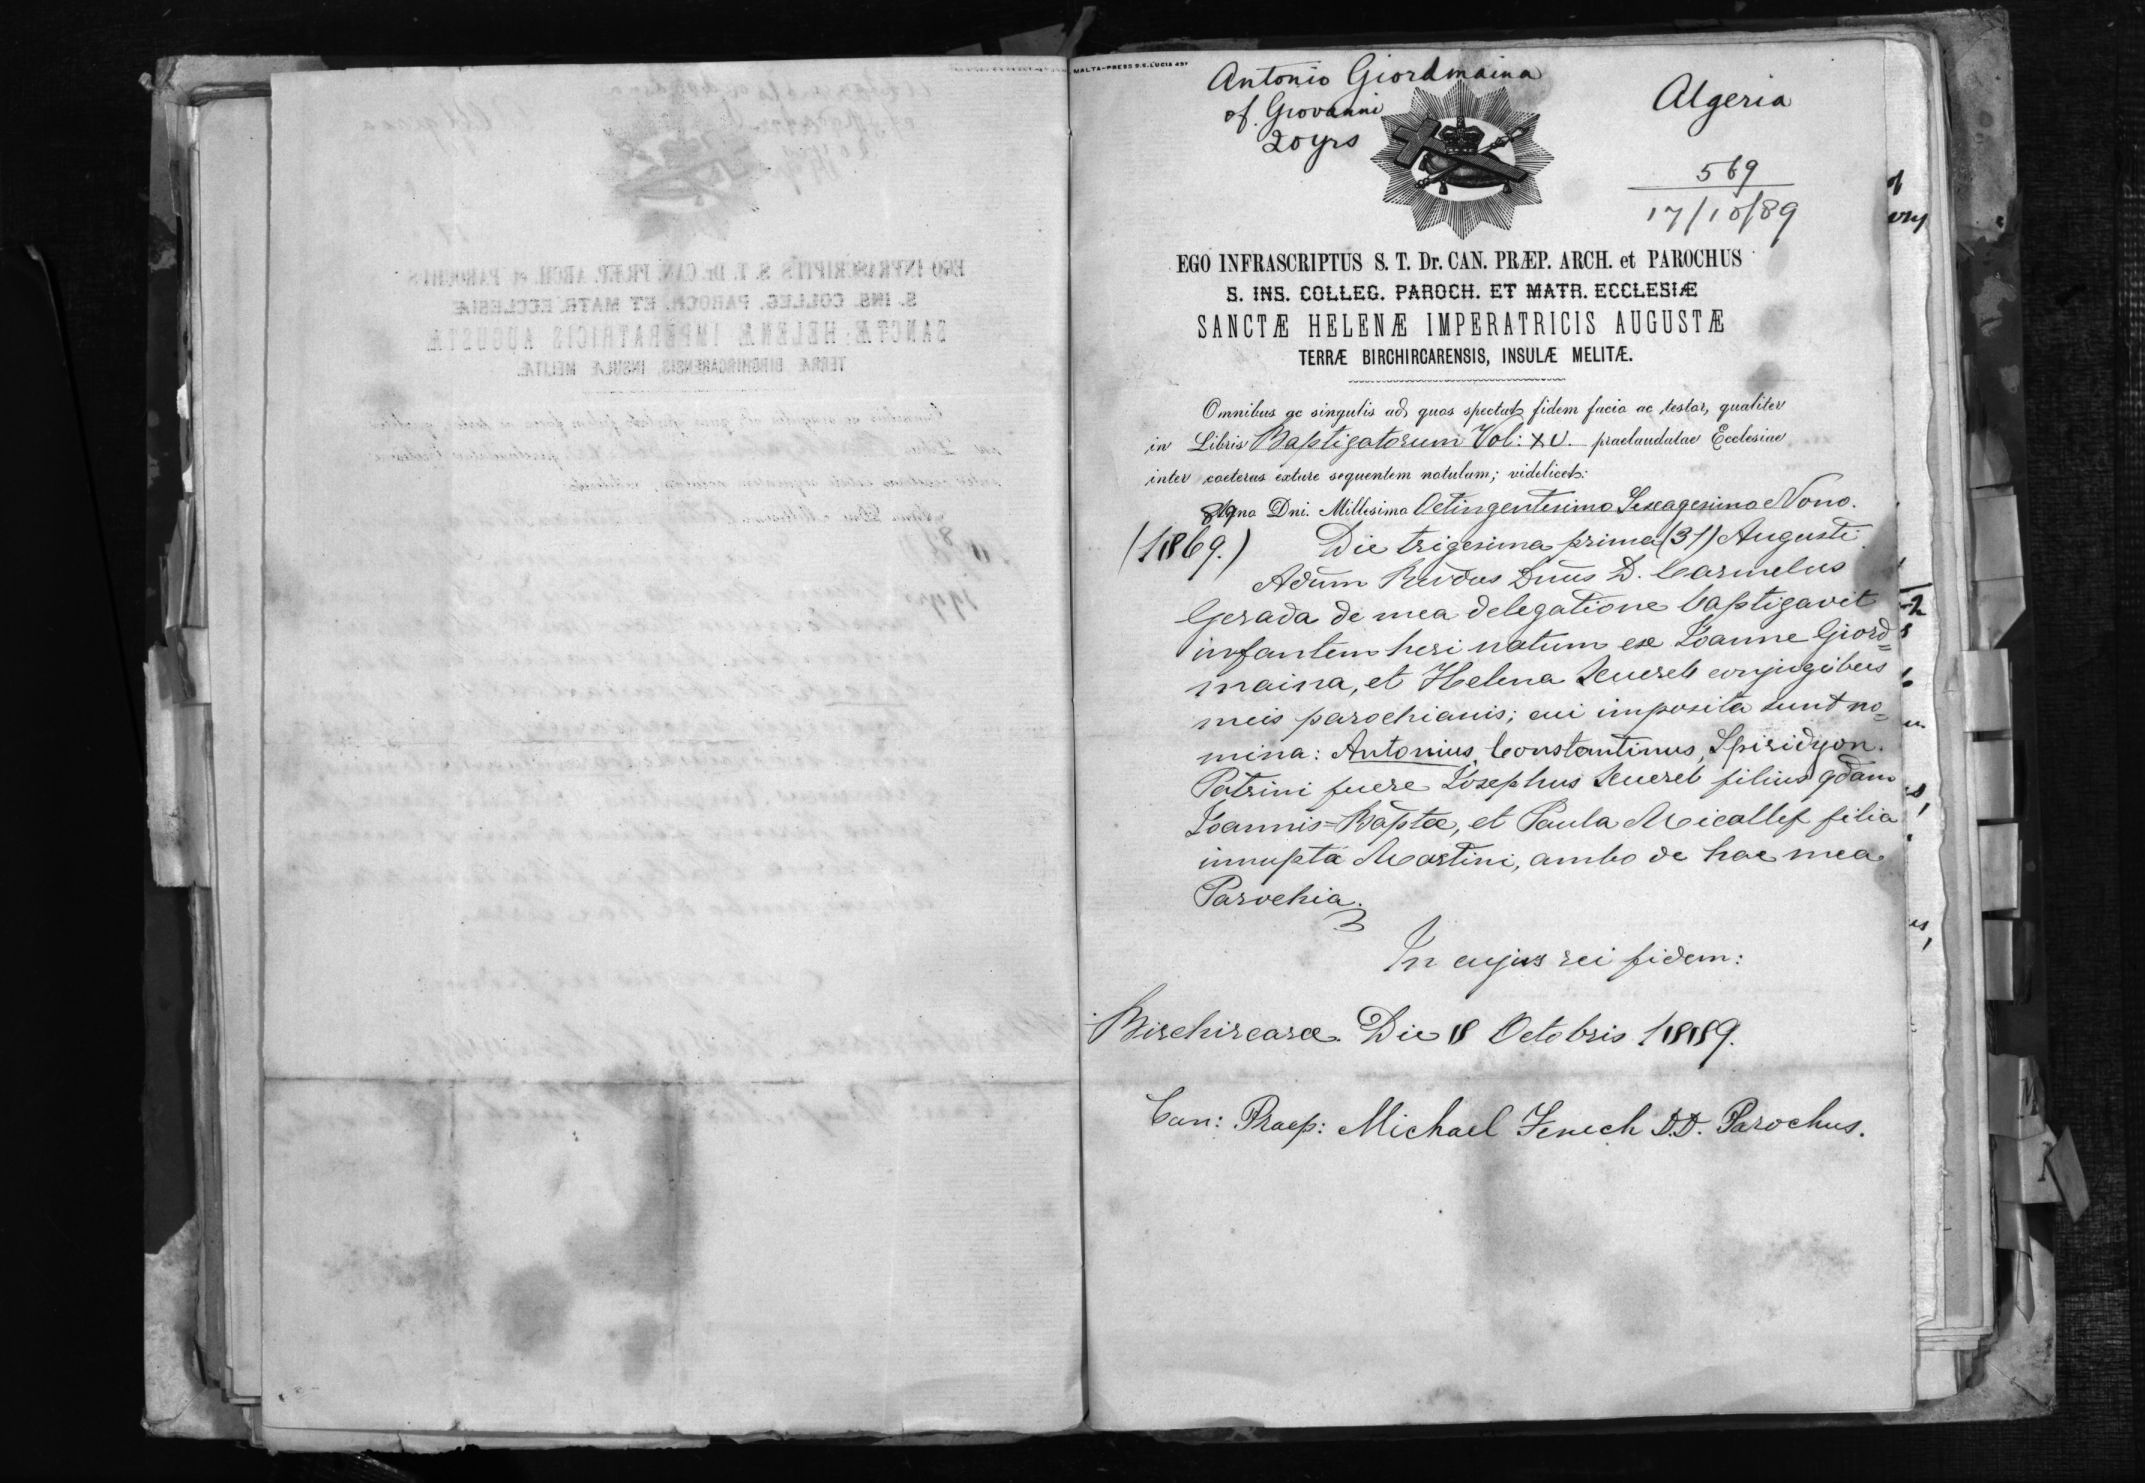 MALTA-PRESS S.S. LUCIA 497
Antonio Giordmaina
of Giovanni
20 yrs
Algeria
569
17/10/89
EGO INFRASCRIPTUS S. T. Dr. CAN. PRÆP. ARCH. et PAROCHUS
S. INS. COLLEG. PAROCH. ET MATR. ECCLESIÆ
SANCTÆ HELENÆ IMPERATRICIS AUGUSTÆ
TERRÆ BIRCHIRCARENSIS, INSULÆ MELITÆ.
Omnibus ac singulis ad quos spectat fidem facio ac testor, qualiter
in Libris Baptizatorum Vol: XV. praelaudatae Ecclesiae
inter caeteras extare sequentem notulam; videlicet:
Anno Dni. Millesimo Octingentesimo Sexagesimo Nono.
(1869.) Die trigesima prima (31) Augusti.
Adum Rndus Dnus D. Carmelus
Gerada de mea delegatione baptizavit
infantem heri natum ex Ioanne Giord=
maina, et Helena Xuereb conjugibus
meis parochianis; cui imposita sunt no=
mina: Antonius, Constantinus, Spiridyon.
Patrini fuere Iosephus Xuereb filius qdam
Ioannis=Baptæ, et Paula Micallef filia
innupta Martini, ambo de hac mea
Parochia.
In cujus rei fidem:
Birchircaræ. Die 8 Octobris 1889.
Can: Praep: Michael Fenech D.D. Parochus.